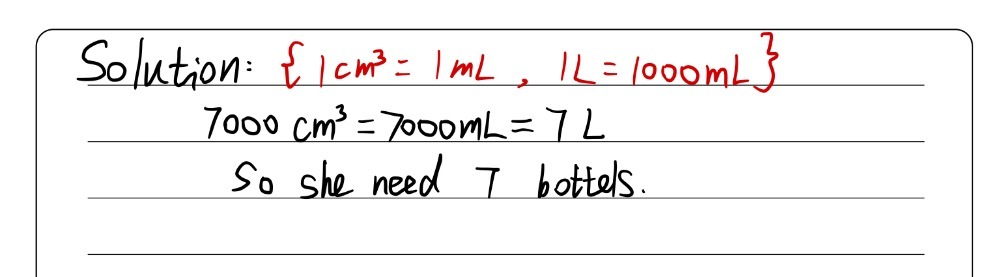 Solution: { 1cm³ = 1mL , 1L = 1000mL }
7000 cm³ = 7000mL = 7 L
So she need 7 bottels.